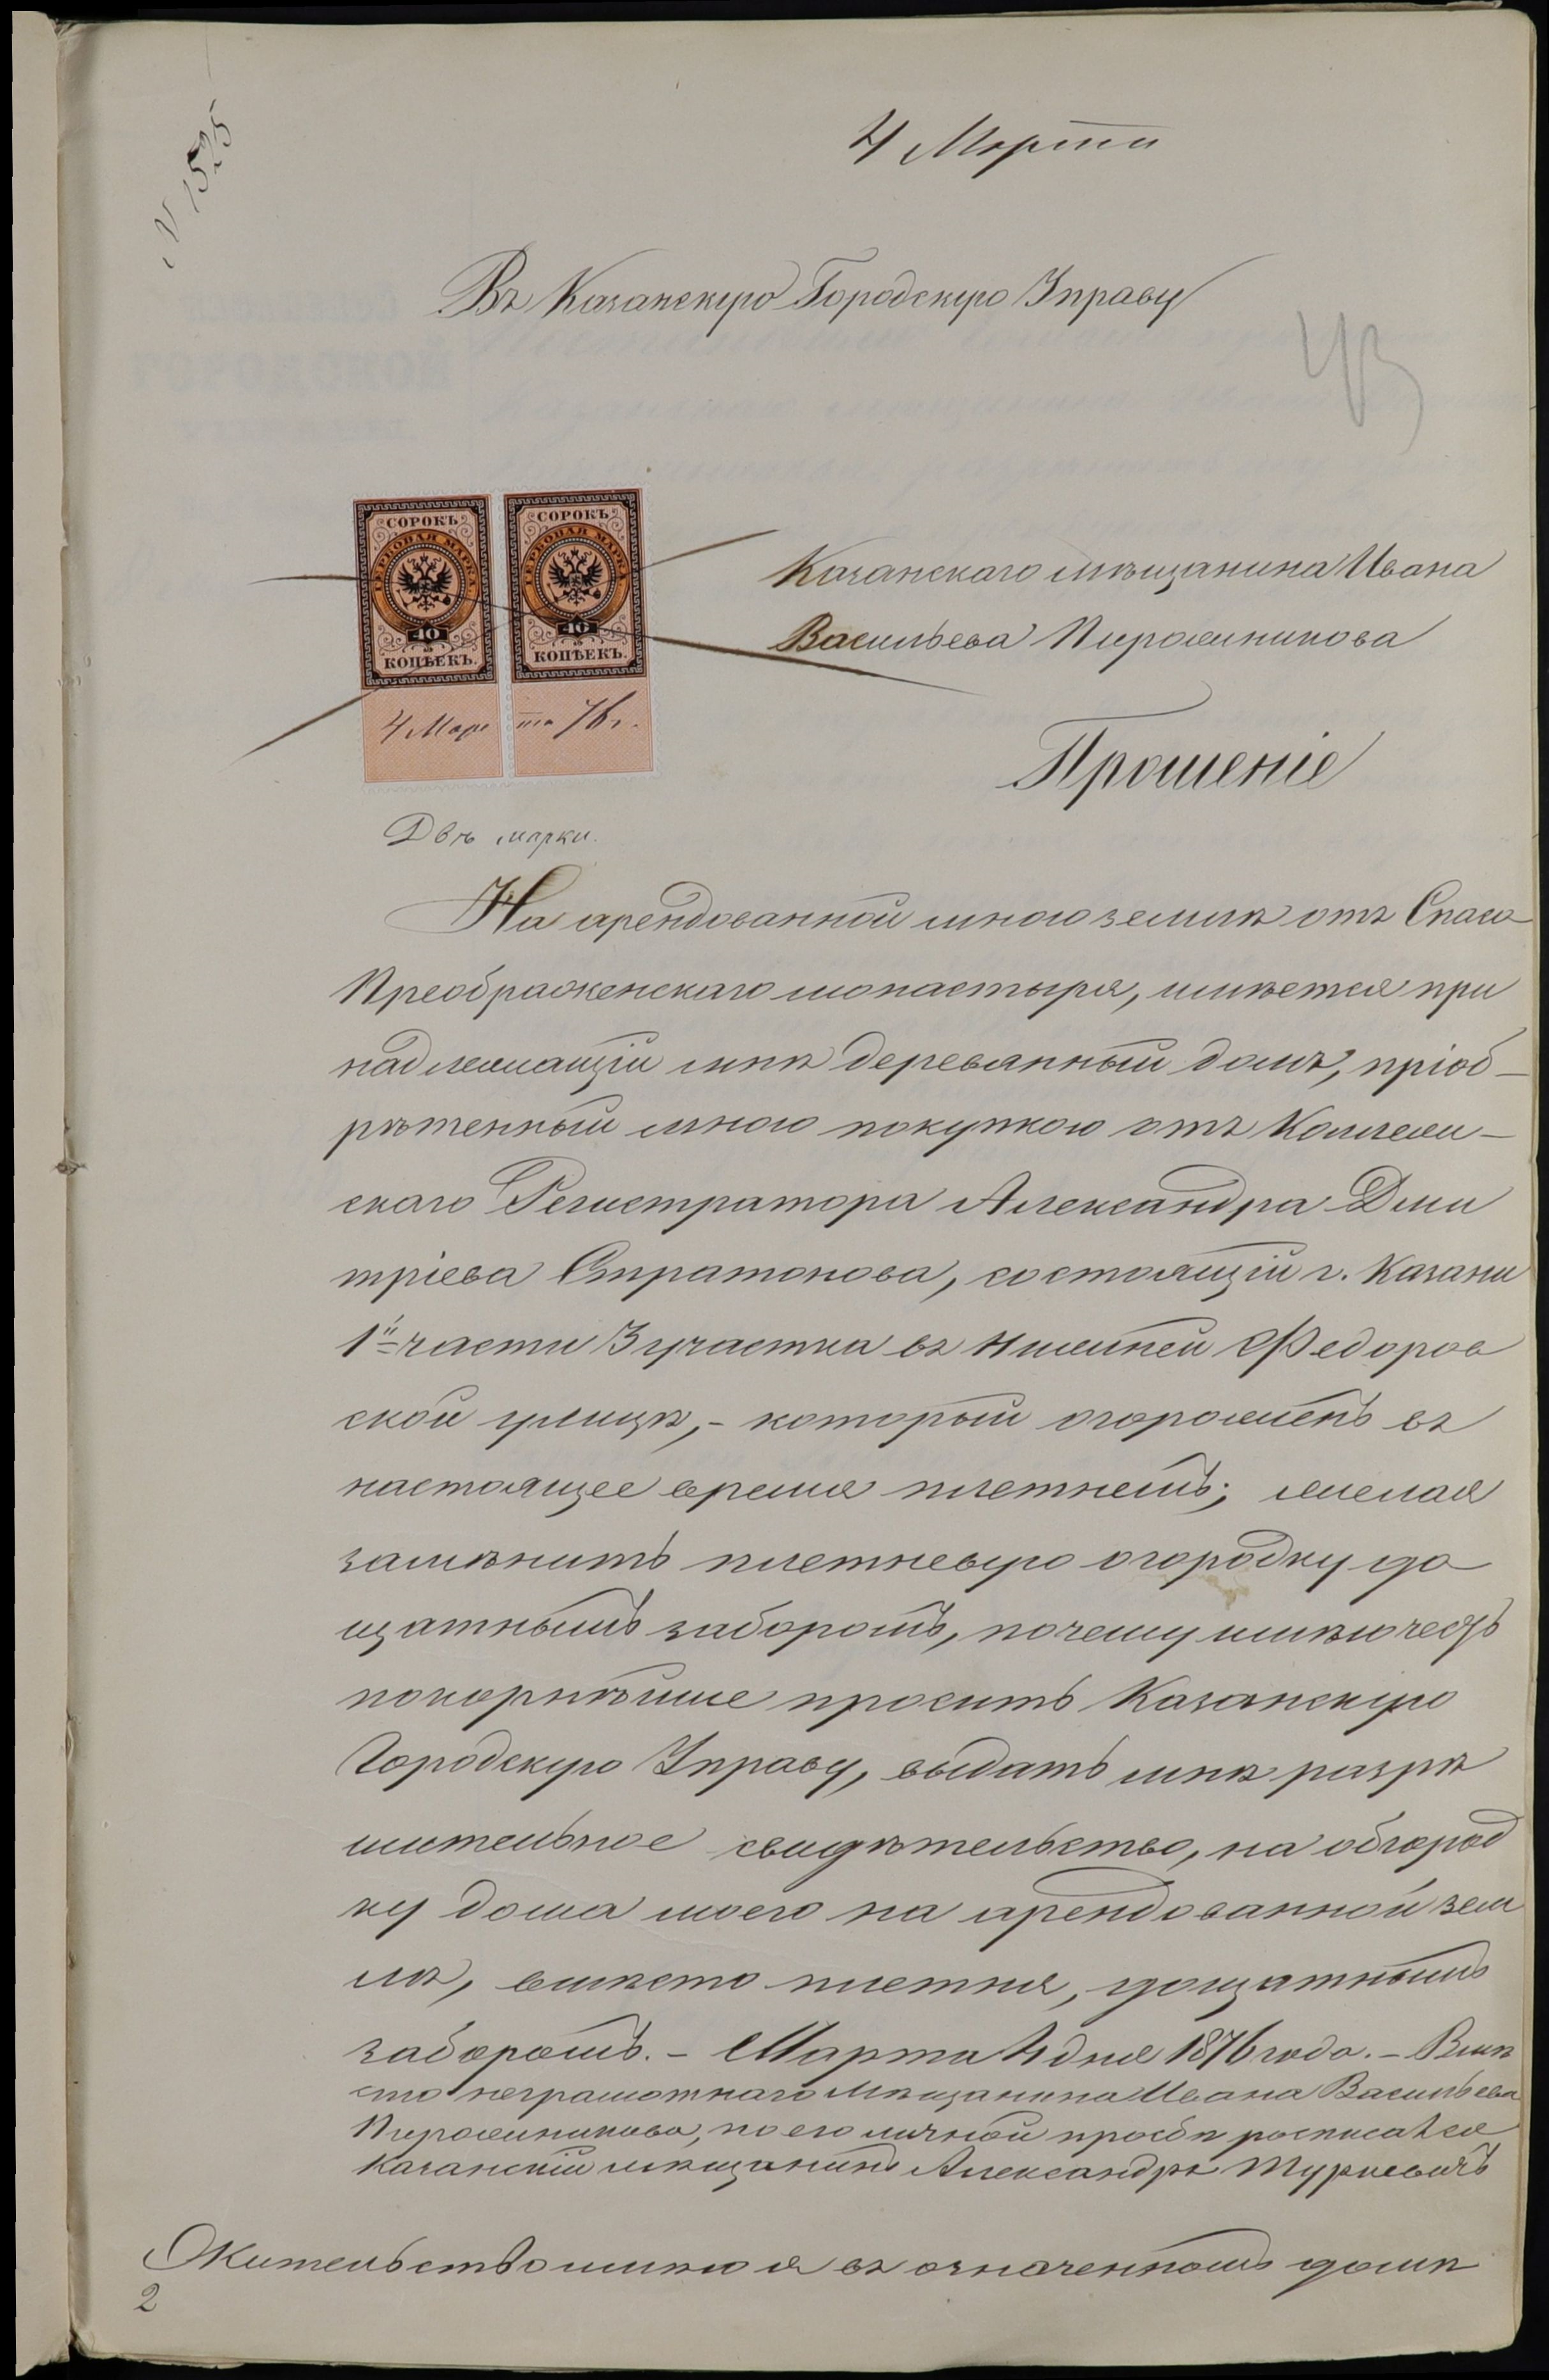 N 1525
4 Марта
Въ Казанскую Городскую Управу
43
СОРОКЪ
ГЕРБОВАЯ МАРКА
40
КОПѢЕКЪ.
СОРОКЪ
ГЕРБОВАЯ МАРКА
40
КОПѢЕКЪ.
4 Марта 76 г.
Двѣ марки.
Казанскаго мѣщанина Ивана
Васильева Пирожникова
Прошеніе
На арендованной мною землѣ отъ Спасо
Преображенскаго монастыря, имѣется при
надлежащій мнѣ деревянный домъ, пріоб–
рѣтенный мною покупкою отъ Коллежи–
скаго Регистратора Александра Дми
тріева Стратонова, состоящій г. Казани
1й части 3 участка въ Нижней Федоров
ской улицѣ,– который огороженъ въ
настоящее время плетнемъ; желая
замѣнить плетневую огородку до
щатнымъ заборомъ, почему имѣю честь
покорнѣйше просить Казанскую
Городскую Управу, выдать мнѣ разрѣ
шительное свидѣтельство, на обгород
ку дома моего на арендованной зем
лѣ, вмѣсто плетня, дощатнымъ
заборомъ. – Марта 4 дня 1876 года. – Вмѣ
сто неграмотнаго Мѣщанина Ивана Васильева
Пирожникова, по его личной прозбѣ росписался
Казанскій мѣщанинъ Александръ Туркевичъ
Жительство имѣю я въ означенномъ домѣ
2